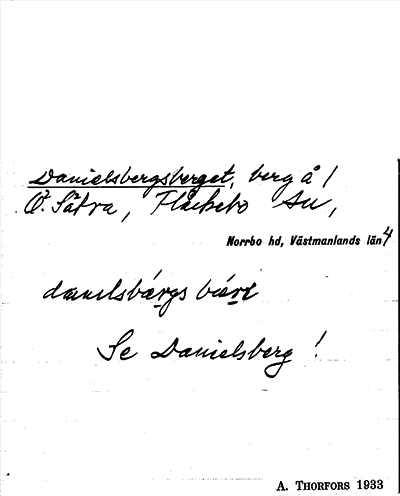 Danielsbergsberget, berg å /
Ö. Sätra, Fläckebo sn,
Norrbo hd, Västmanlands län 4
Se Danielsberg!
A. THORFORS 1933